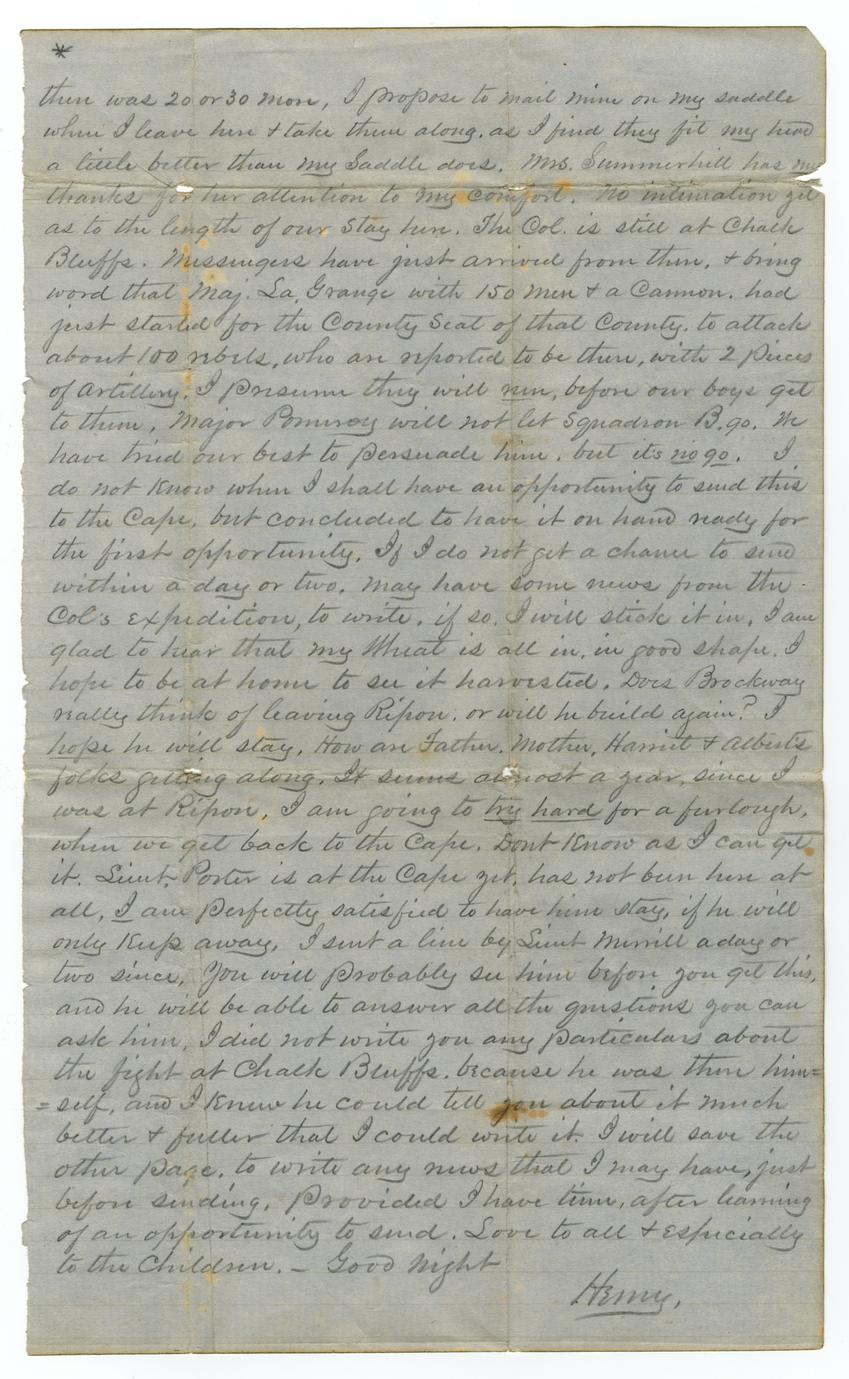 *
there was 20 or 30 more, I propose to nail mine on my saddle
when I leave here & take them along. as I find they fit my head
a little better than my Saddle does. Mrs. Summerhill has my
thanks for her attention to my comfort. No intimation yet
as to the length of our Stay here. The Col. is still at Chalk
Bluffs. Messengers have just arrived from there, & bring
word that Maj. La Grange with 150 men & a Cannon. had
just started for the County Seat of that County. to attack
about 100 rebels, who are reported to be there, with 2 pieces
of Artillery. I presume they will run, before our boys get
to them, Major Pomeroy will not let Squadron B. go. We
have tried our best to persuade him. but it's no go. I
do not know when I shall have an opportunity to send this
to the Cape, but concluded to have it on hand ready for
the first opportunity. If I do not get a chance to send
within a day or two. may have some news from the
Col's expedition, to write. if so. I will stick it in. I am
glad to hear that my Wheat is all in. in good shape. I
hope to be at home to see it harvested. Does Brockway
really think of leaving Ripon. or will he build again? I
hope he will stay. How are Father. Mother, Harriet & Alberts
folks getting along. It seems almost a year, since I
was at Ripon. I am going to try hard for a furlough,
when we get back to the Cape. Dont Know as I can get
it. Lieut. Porter is at the Cape yet. has not been here at
all, I am perfectly satisfied to have him stay, if he will
only Keep away, I sent a line by Lieut Merrill a day or
two since, You will probably see him before you get this,
and he will be able to answer all the questions you can
ask him, I did not write you any particulars about
the fight at Chalk Bluffs. because he was there him=
=self, and I knew he could tell you about it much
better & fuller that I could write it. I will save the
other page. to write any news that I may have, just
before sending. Provided I have time, after learning
of an opportunity to send. Love to all & Especially
to the Children. – Good Night
Henry.